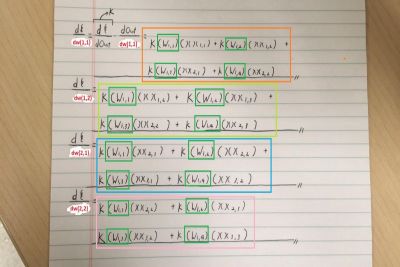 k
dℓ/dw(1,1) = dℓ/dOut · dOut/dw(1,1) = k(W1,1)(XX1,1) + k(W1,2)(XX1,2) +
k(W1,3)(XX2,1) + k(W1,4)(XX2,2) //
dℓ/dw(1,2) = k(W1,1)(XX1,2) + k(W1,2)(XX1,3) +
k(W1,3)(XX2,2) + k(W1,4)(XX2,3) //
dℓ/dw(2,1) = k(W1,1)(XX2,1) + k(W1,2)(XX2,2) +
k(W1,3)(XX3,1) + k(W1,4)(XX3,2) //
dℓ/dw(2,2) = k(W1,1)(XX2,2) + k(W1,2)(XX2,3)
k(W1,3)(XX3,2) + k(W1,4)(XX3,3) //